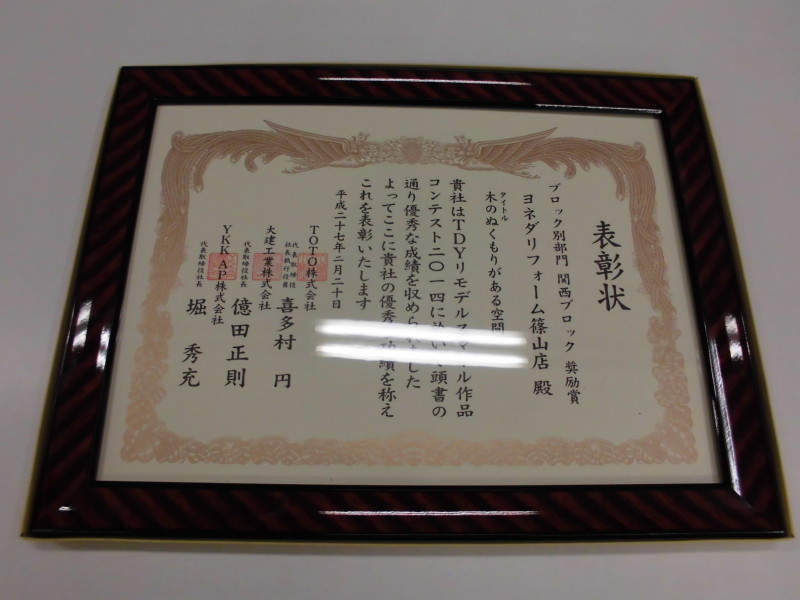 表彰状
ブロック別部門 関西ブロック 奨励賞
ヨネダリフォーム篠山店 殿
タイトル
木のぬくもりがある空間
貴社はTDYリモデルスマイル作品
コンテスト二〇一四において頭書の
通り優秀な成績を収められました
よってここに貴社の優秀な功績を称え
これを表彰いたします
平成二十七年二月二十日
TOTO株式会社
代表取締役
社長執行役員
喜多村 円
大建工業株式会社
代表取締役社長
億田正則
YKKAP株式会社
代表取締役社長
堀 秀充